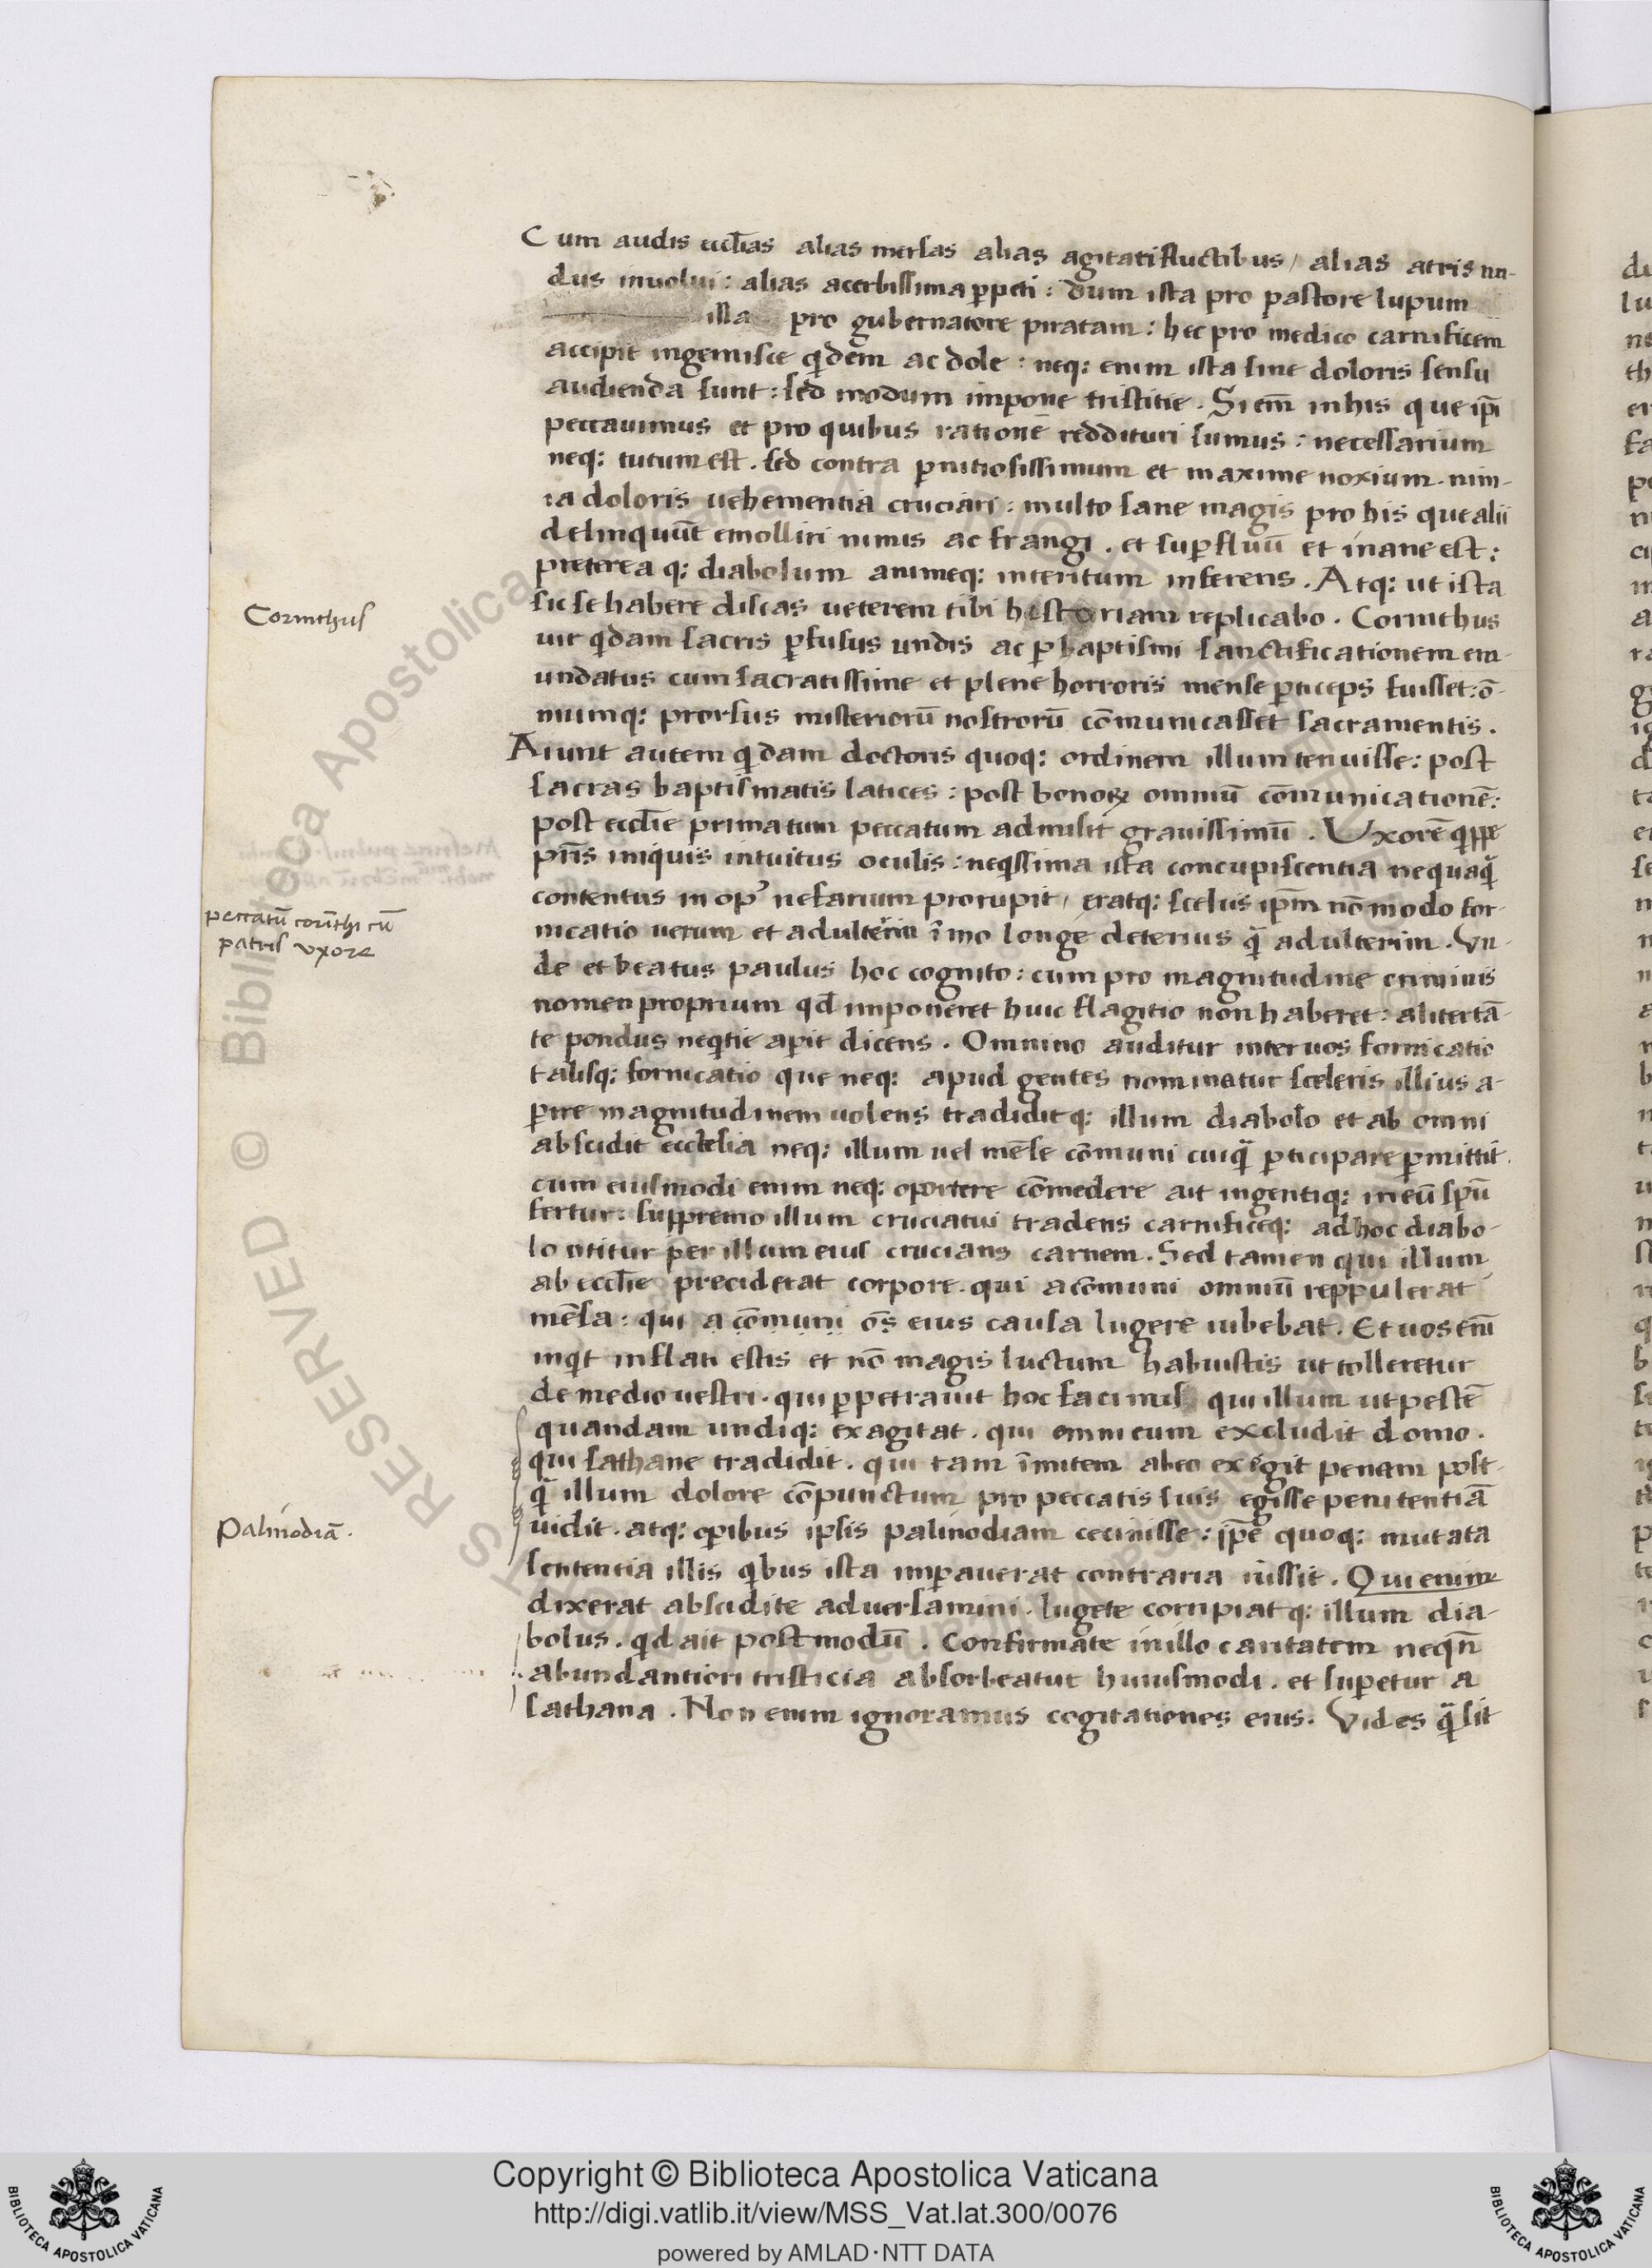 Cum audis eccl̄ias alias mersas alias agitati fluctibus / alias atris un-
dus inuolui : alias acerbissima ꝑpeti : dum ista pro pastore lupum
illa pro gubernatore piratam : hec pro medico carnificem
accipit ingemisce q̇dem ac dole : neq; enim ista sine doloris sensu
audienda sunt : sed modum impone tristitie . Si em̄ in his que ip̄i
peccauimus et pro quibus rationē reddituri sumus : necessarium
neq; tutum est . sed contra ꝑnitiosissimum et maxime noxium . nim-
ia doloris uehementia cruciari : multo sane magis pro his que alii
delinquūt emolliri nimis ac frangi . et suꝑfluū et inane est :
preterea q; diabolum animeq; interitum inferens . Atq; ut ista
sic se habere discas ueterem tibi historiam replicabo . Corinthus
Corinthus
uir q̇dam sacris ꝑfusus undis ac ꝑ baptismi sanctificationem em-
undatus cum sacratissime et plene horroris mense ꝑticeps fuisset : ō-
niumq; prorsus misteriorū nostrorū cōmunicasset sacramentis .
Aiunt autem q̇dam doctoris quoq; ordinem illum tenuisse : post
sacras baptismatis latices : post bonoꝝ omniū cōmunicationē :
post eccl̄ie primatum peccatum admisit grauissimū . Uxorē q̇ppe
pr̄is iniquis intuitus oculis : neq̇ssima ista concupiscentia nequaq̄
contentus in opꝰ nefarium prorupit / eratq; scelus ip̄m nō modo for-
peccatū corīthi cū
patris vxore
nicatio uerum et adulterin īmo longe deterius q̄ adulterim . Vn-
de et beatus paulus hoc cognito : cum pro magnitudine criminis
nomen proprium qd̄ imponeret huic flagitio non haberet : aliter tā-
te pondus neq̇tie aꝑit dicens . Omnino auditur inter uos fornicatio
talisq; fornicatio que neq; apud gentes nominatur sceleris illius a-
ꝑire magnitudinem uolens tradidit q; illum diabolo et ab omni
abscidit ecclesia neq; illum uel mēse cōmuni cuiq̄ ꝑticipare ꝑmittit .
cum eiusmodi enim neq; oportere cōmedere ait ingentiq; in eū sp̄u
fertur : suppremo illum cruciatui tradens carnificeq; ad hoc diabo-
lo utitur per illum eius crucians carnem . Sed tamen qui illum
ab eccl̄ie preciderat corpore . qui a cōmuni omniū reppulerat
mēsa : qui a cōmuni ōs eius causa lugere iubebat . Et uos em̄
inq̇t inflati estis et nō magis luctum habuistis ut tolleretur
de medio uestri . qui ꝑpetrauit hoc facinus qui illum ut pestē
quandam undiq; exagitat . qui omni eum excludit domo .
qui sathane tradidit . qui tam īmitem ab eo exegit penam post-
q̄ illum dolore cōpunctum pro peccatis suis egisse penitentiā
uidit . atq; oꝑibus ipsis palinodiam cecinisse : ip̄e quoq; mutata
Palinodiā .
sententia illis q̇bus ista imꝑauerat contraria iussit . Qui enim
dixerat abscidite aduersamini . lugete corripiat q; illum dia-
bolus . qd ait postmodū . Confirmate in illo caritatem neq̄n
abundantiori tristicia absorbeatur huiusmodi . et suꝑetur a
sathana . Non enim ignoramus cogitationes eius . Vides q̄ sit
Copyright © Biblioteca Apostolica Vaticana
http://digi.vatlib.it/view/MSS_Vat.lat.300/0076
powered by AMLAD·NTT DATA